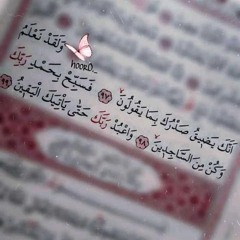 وَلَقَدْ نَعْلَمُ
HOORD_
أَنَّكَ يَضِيقُ صَدْرُكَ بِمَا يَقُولُونَ ٩٧ فَسَبِّحْ بِحَمْدِ رَبِّكَ
وَكُن مِّنَ السَّاجِدِينَ ٩٨ وَاعْبُدْ رَبَّكَ حَتَّىٰ يَأْتِيَكَ الْيَقِينُ ٩٩